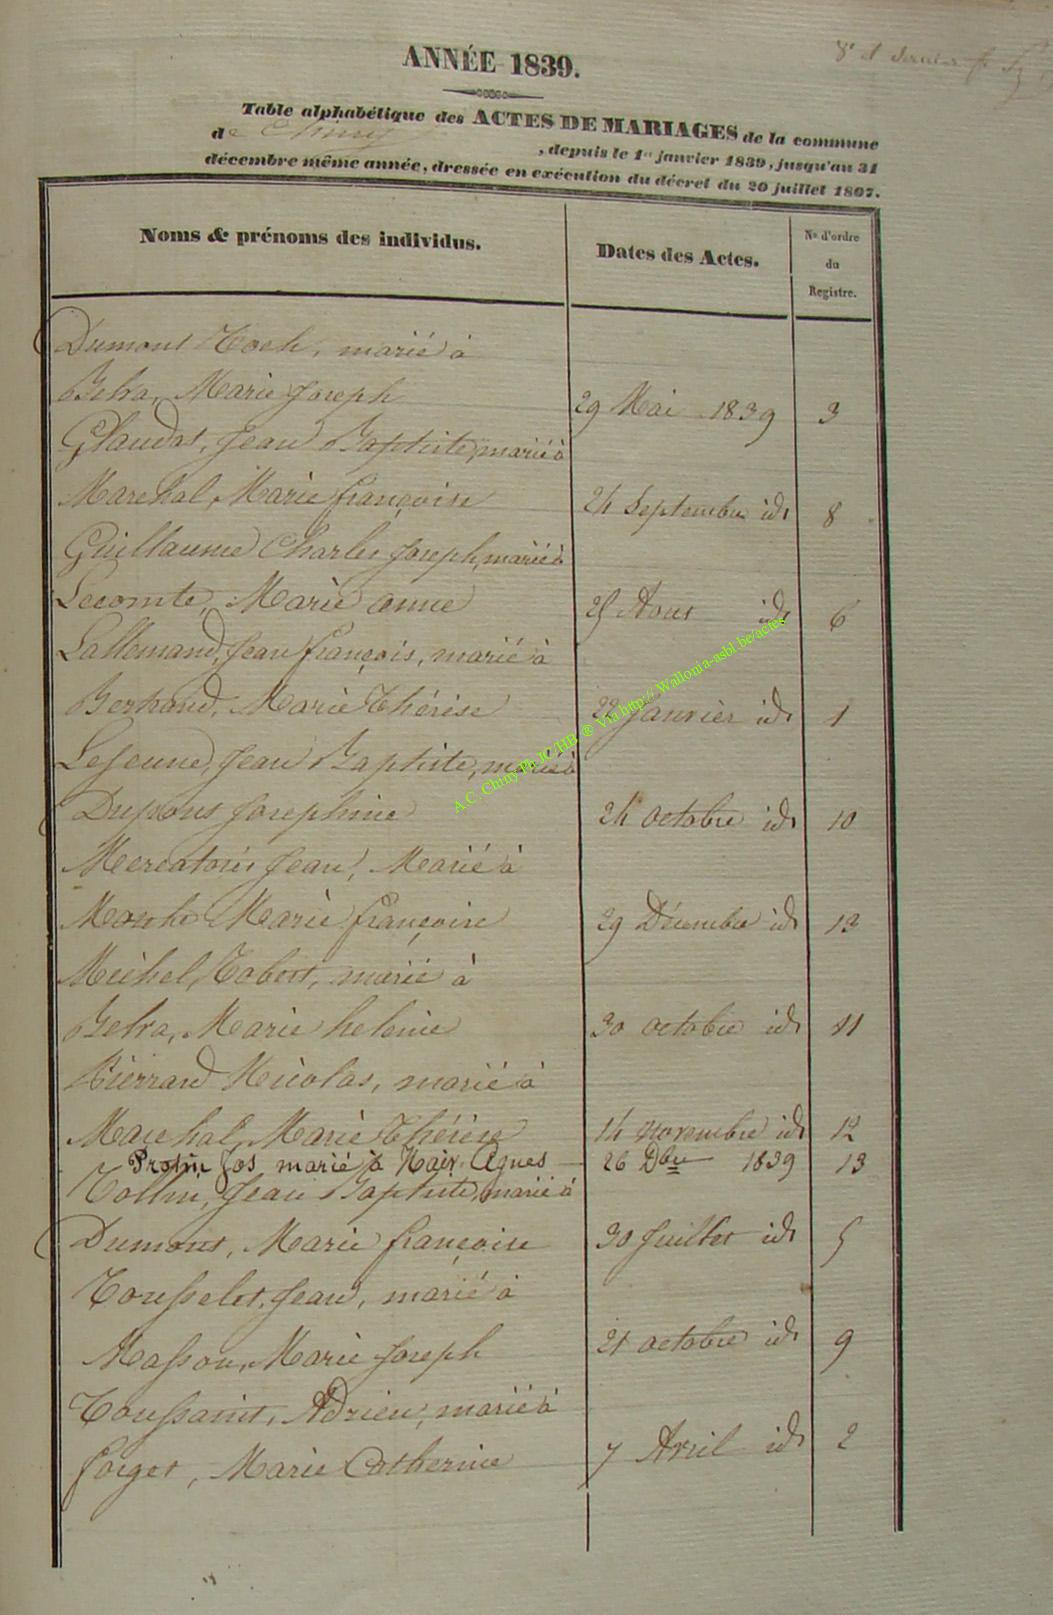 8e et dernier f.
ANNÉE 1839.
Table alphabétique des ACTES DE MARIAGES de la commune
de Chiny , depuis le 1er janvier 1839, jusqu'au 31
décembre même année, dressée en exécution du décret du 20 juillet 1807.
Noms & prénoms des individus. Dates des Actes. No d'ordre du Registre.
Dumont Roch, marié à
Belva, Marie Joseph 29 Mai 1839 3
Glaudat, Jean Baptiste, marié à
Marechal, Marie françoise 24 Septembre id. 8
Guillaume Charles Joseph, marié à
Lecomte, Marie anne 25 Aout id. 6
Lallemand, Jean françois, marié à
Bertrand, Marie Thérèse 22 Janvier id. 1
Lejeune, Jean Baptiste, marié à
Dupont Josephine 24 octobre id. 10
Mercatoris Jean, Marié à
Marie françoise 29 Décembre id. 13
Michel, Robert, marié à
Belva, Marie helenie 30 octobre id. 11
Pierrard Nicolas, marié à
Marechal, Marie Thérèse 14 novembre id. 12
Protin Jos. marié à Haix Agnes 26 Dbre 1839 13
Rollin, Jean Baptiste, marié à
Dumont, Marie françoise 30 Juillet id. 5
Rousselet, Jean, marié à
Masson, Marie Joseph 21 octobre id. 9
Toussaint, Adrien, marié à
forget, Marie Catherine 7 Avril id. 2
A.C. Chiny Ph JC/HB ® Via http://Wallonia-asbl.be/actes